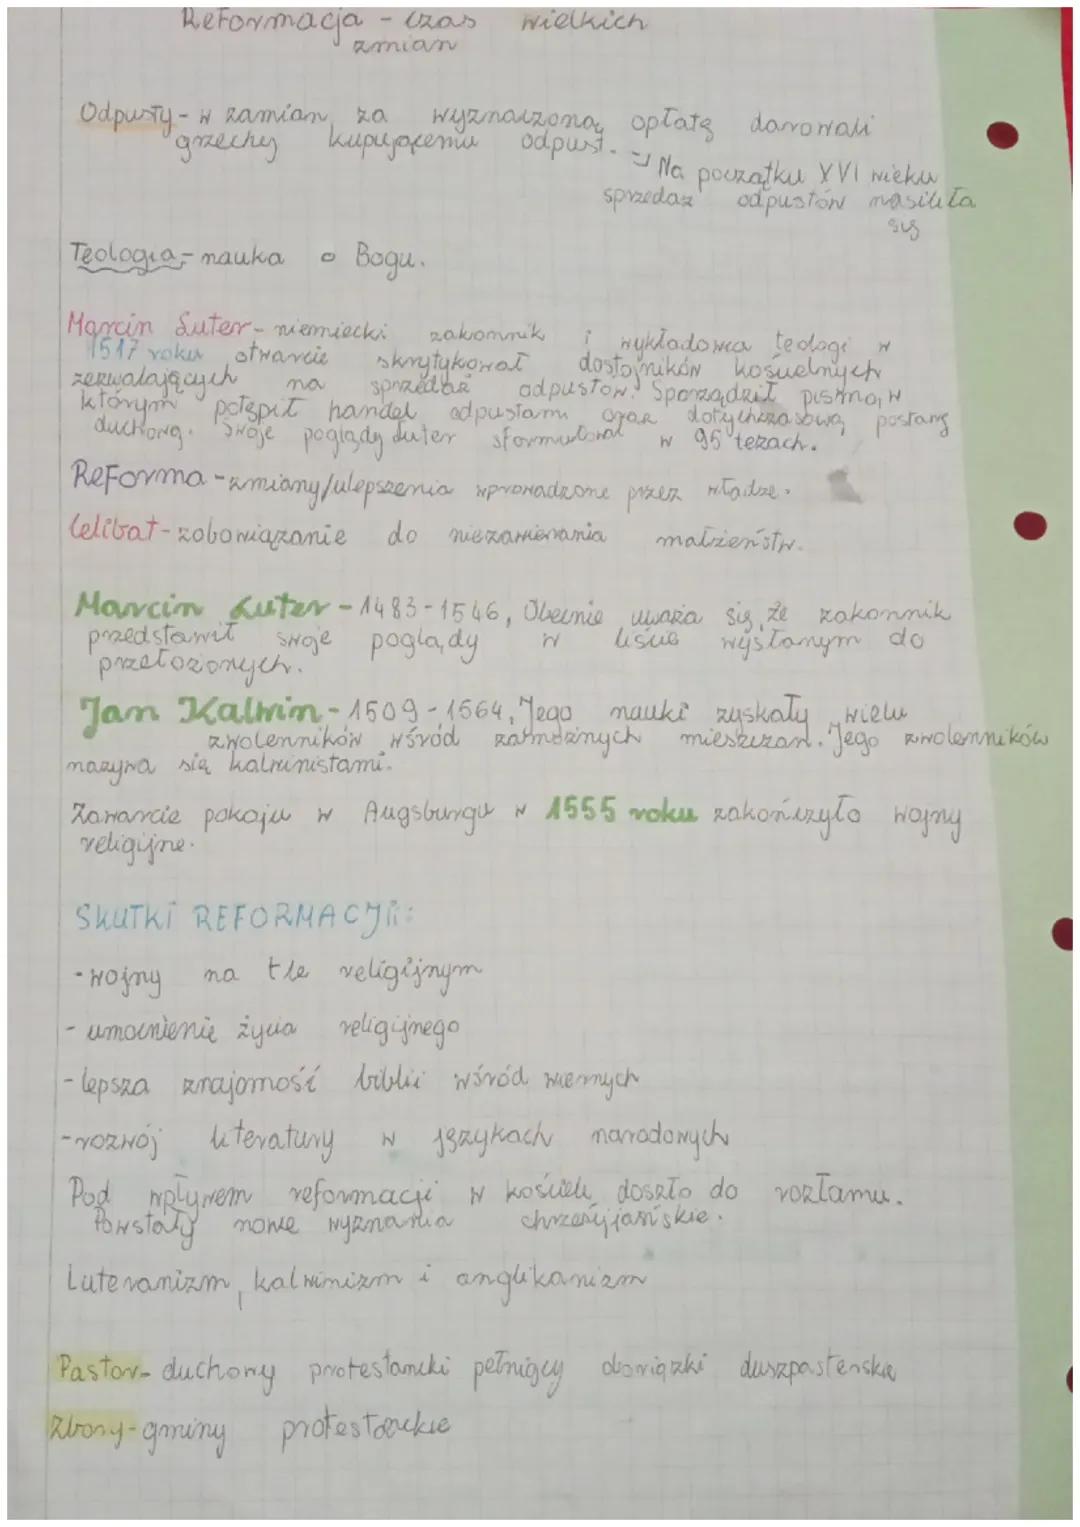 Reformacja - czas wielkich
zmian
Odpusty - w zamian za wyznaczoną opłatę darowali
grzechy kupującemu odpust. => Na początku XVI wieku
sprzedaż odpustów nasiliła
się
Teologia - nauka o Bogu.
Marcin Luter - niemiecki zakonnik i wykładowca teologi w
1517 roku otwarcie skrytykował dostojników kościelnych
zezwalających na sprzedaż odpustów. Sporządził pismo, w
którym potępił handel odpustami oraz dotychczasową postawę
duchową. Swoje poglądy Luter sformułował w 95 tezach.
Reforma - zmiany/ulepszenia wprowadzone przez władze.
Celibat - zobowiązanie do niezawierania małżeństw.
Marcin Luter - 1483-1546, Obecnie uważa się, że zakonnik
przedstawił swoje poglądy w liście wysłanym do
przełożonych.
Jan Kalwin - 1509-1564, Jego nauki zyskały wielu
zwolenników wśród zamożnych mieszczan. Jego zwolenników
nazywa się kalwinistami.
Zawarcie pokoju w Augsburgu w 1555 roku zakończyło wojny
religijne.
SKUTKI REFORMACJI:
- wojny na tle religijnym
- umocnienie życia religijnego
- lepsza znajomość biblii wśród wiernych
- rozwój literatury w językach narodowych
Pod wpływem reformacji w kościele doszło do rozłamu.
Powstały nowe wyznania chrześcijańskie.
Luteranizm, kalwinizm i anglikanizm
Pastor - duchowny protestancki pełniący obowiązki duszpasterskie
Zbory - gminy protestanckie